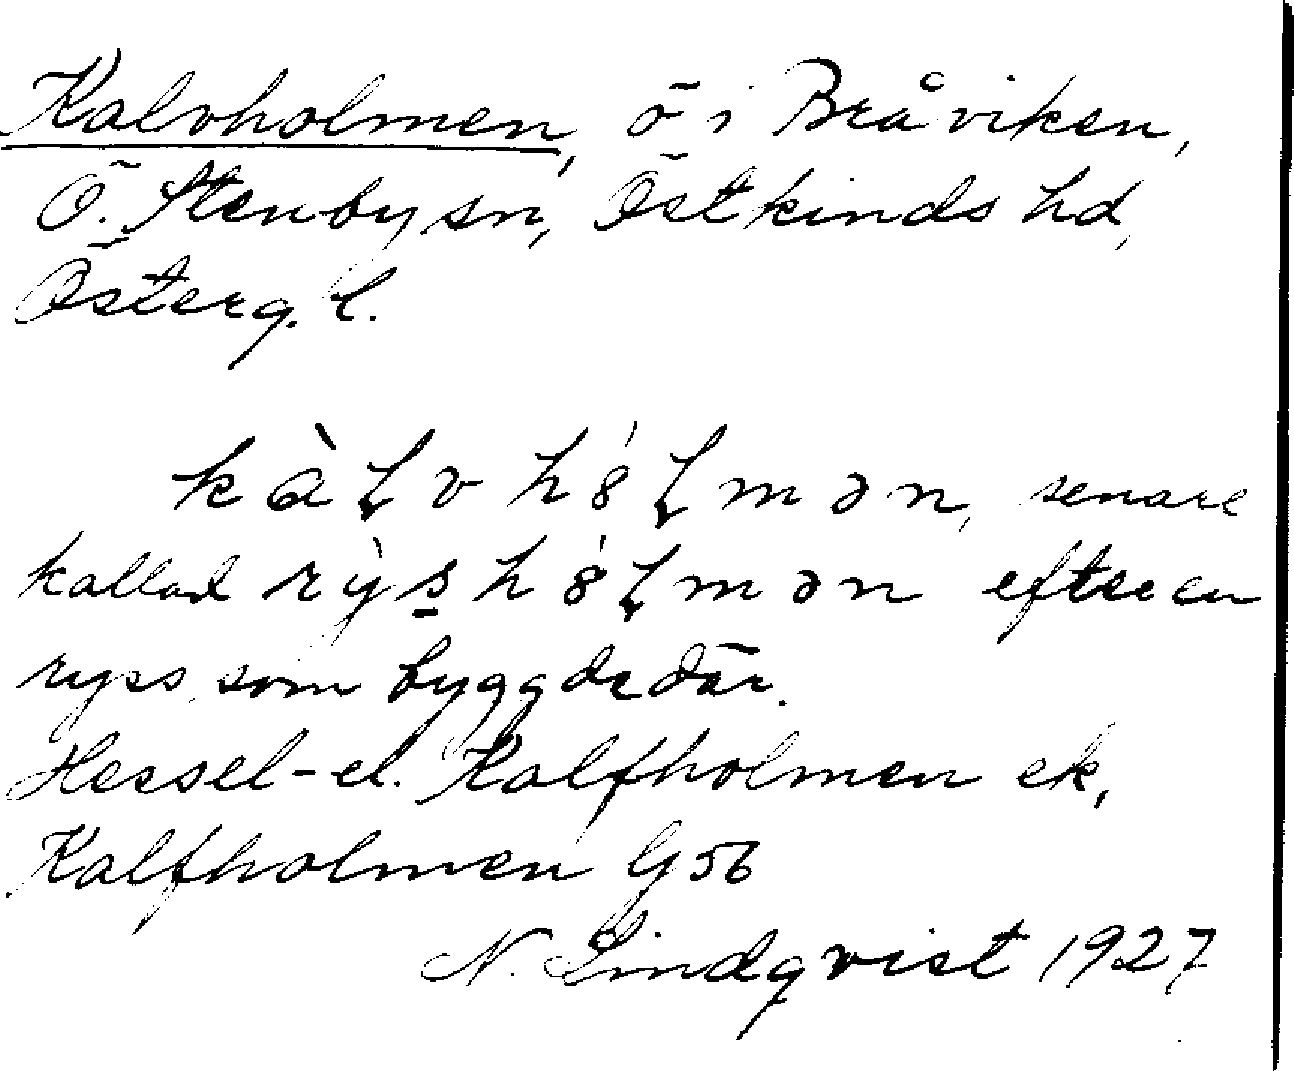 Kalvholmen, ö i Bråviken,
Ö. Stenby sn, Östkinds hd,
Österg. l.
kàɭvh8́ɭmən, senare
kallad rỳs̱h8́ɭmən efter en
ryss, som byggde där.
Hessel- el. Kalfholmen ek,
Kalfholmen G 56
N. Lindqvist 1927